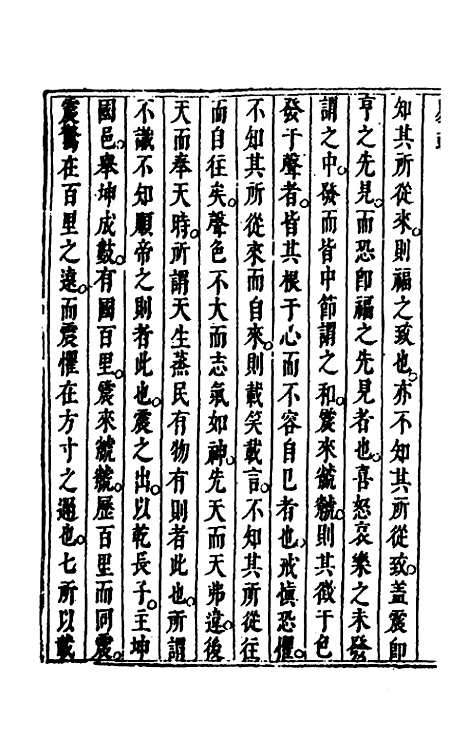 知其所從來則福之致也亦不知其所從致蓋震卽
亨之先見而恐卽福之先見者也喜怒哀樂之未發
謂之中發而皆中節謂之和震來虩虩則其徵于色
發于聲者皆其根于心而不容自已者也戒慎恐懼
不知其所從來而自來則載笑載言不知其所從往
而自往矣聲色不大而志氣如神先天而天弗違後
天而奉天時所謂天生蒸民有物有則者此也所謂
不識不知順帝之則者此也震之出以乾長子主坤
國邑舉坤成鼓有國百里震來虩虩歷百里而同震
震驚在百里之遠而震懼在方寸之邇也七所以載